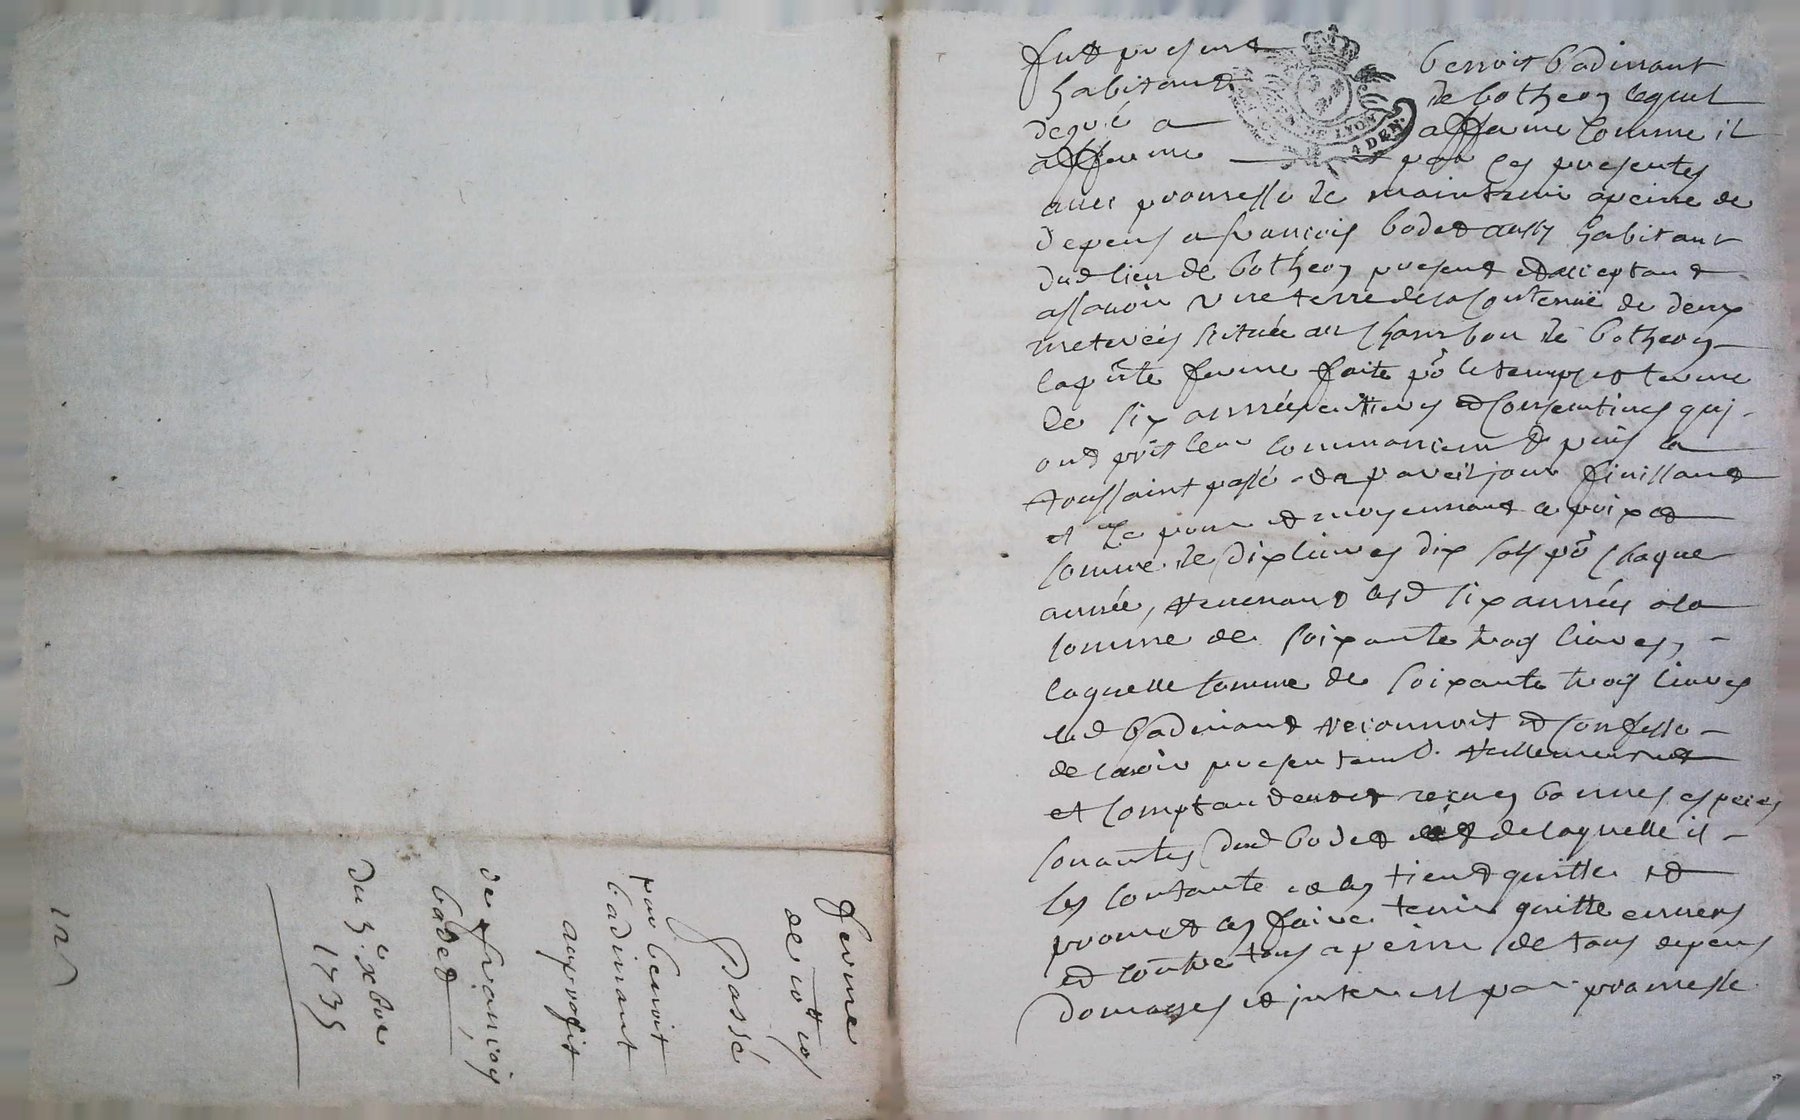 fut present benoit badinant
habitant de botheon lequel
de gré a affermé comme il
afferme par ces presentes
avec promesse de maintenir a peine de
depens a francois badet aussy habitant
dud lieu de botheon present et acceptant
assavoir une terre de la contenuë de deux
meterées scituée au chambon de botheon
la pnte ferme faite pō le temps et terme
de six années entieres et consecutives qui
ont pris leur commancement puis la
toussaint passé et a pareil jour finissant
et ce pour et moyennant le prix et
somme de dix livres dix sols pō chaque
année, revenant lesd six années a la
somme de soixante trois livres,
laquelle somme de soixante trois livres
led badinant reconnoit et confesse
de lavoir presentemt. réellement
et comptant reçue en bonnes especes
sonantes dud badet de laquelle il
sen contante et len tient quitte et
promet len faire tenir quitte envers
et contre tous a peine de tous depens
domages et interest par promesse
DE LYON
4 DEN.
ferme
de 10 ll 10 s
Passé
par benoit
badinant
au profit
de francois
badet
du 3e. xbre
1735